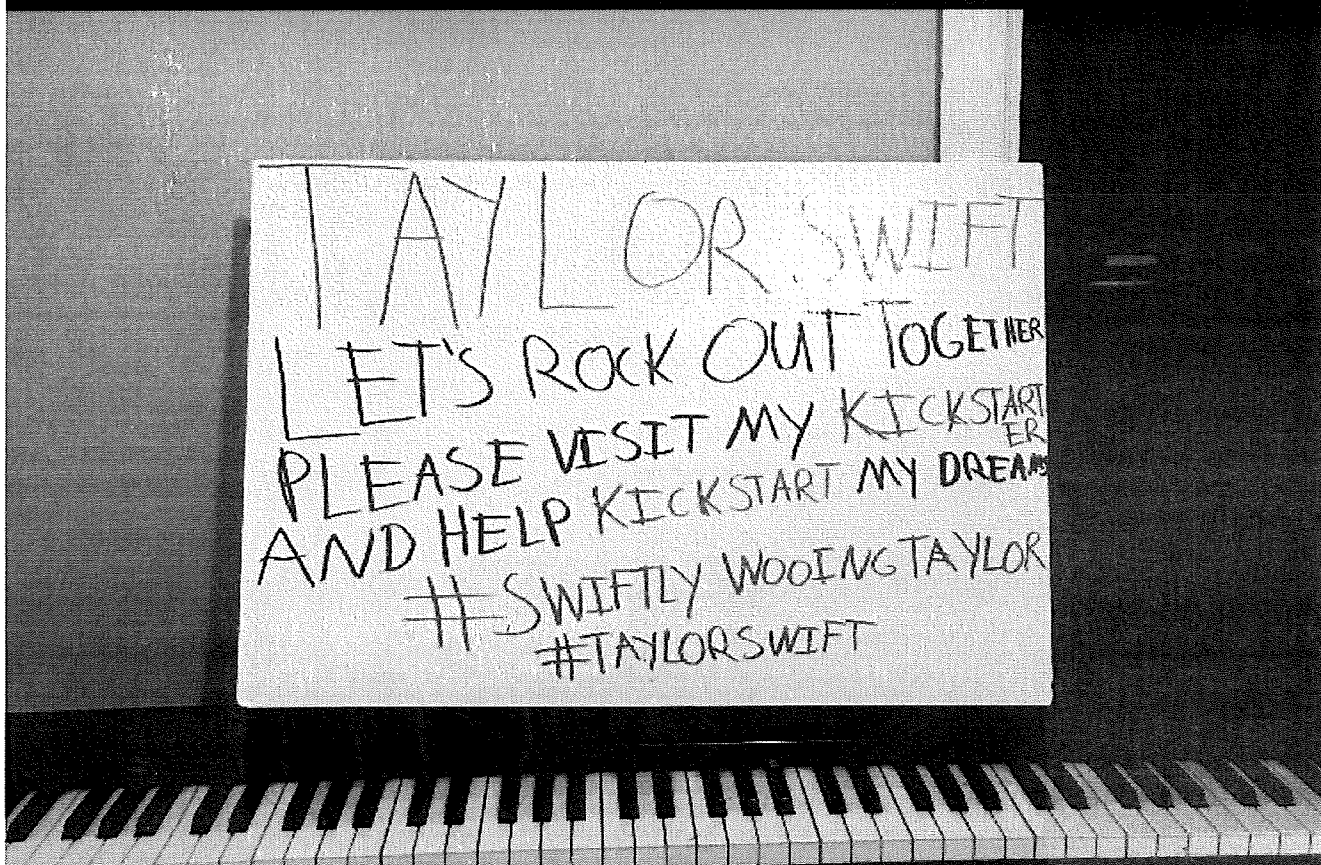 TAYLOR SWIFT
LET'S ROCK OUT TOGETHER
PLEASE VISIT MY KICKSTARTER
AND HELP KICKSTART MY DREAMS
#SWIFTLY WOOING TAYLOR
#TAYLORSWIFT